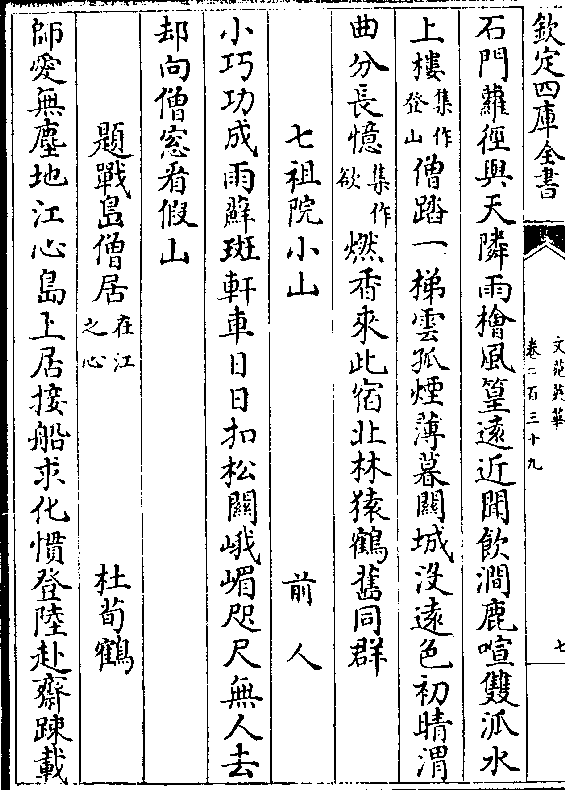 欽定四庫全書
文苑英華
卷二百三十九
七
石門蘿徑與天隣雨檜風篁遠近聞飲澗鹿喧雙派水
上樓集作登山僧踏一梯雲孤煙薄暮關城没遠色初晴渭
曲分長憶集作欲燃香來此宿北林猿鶴舊同群
七祖院小山 前人
小巧功成雨蘚斑軒車日日扣松關峨嵋咫尺無人去
却向僧窓看假山
題戰島僧居在江之心 杜荀鶴
師愛無塵地江心島上居接船求化慣登陸赴齋踈載